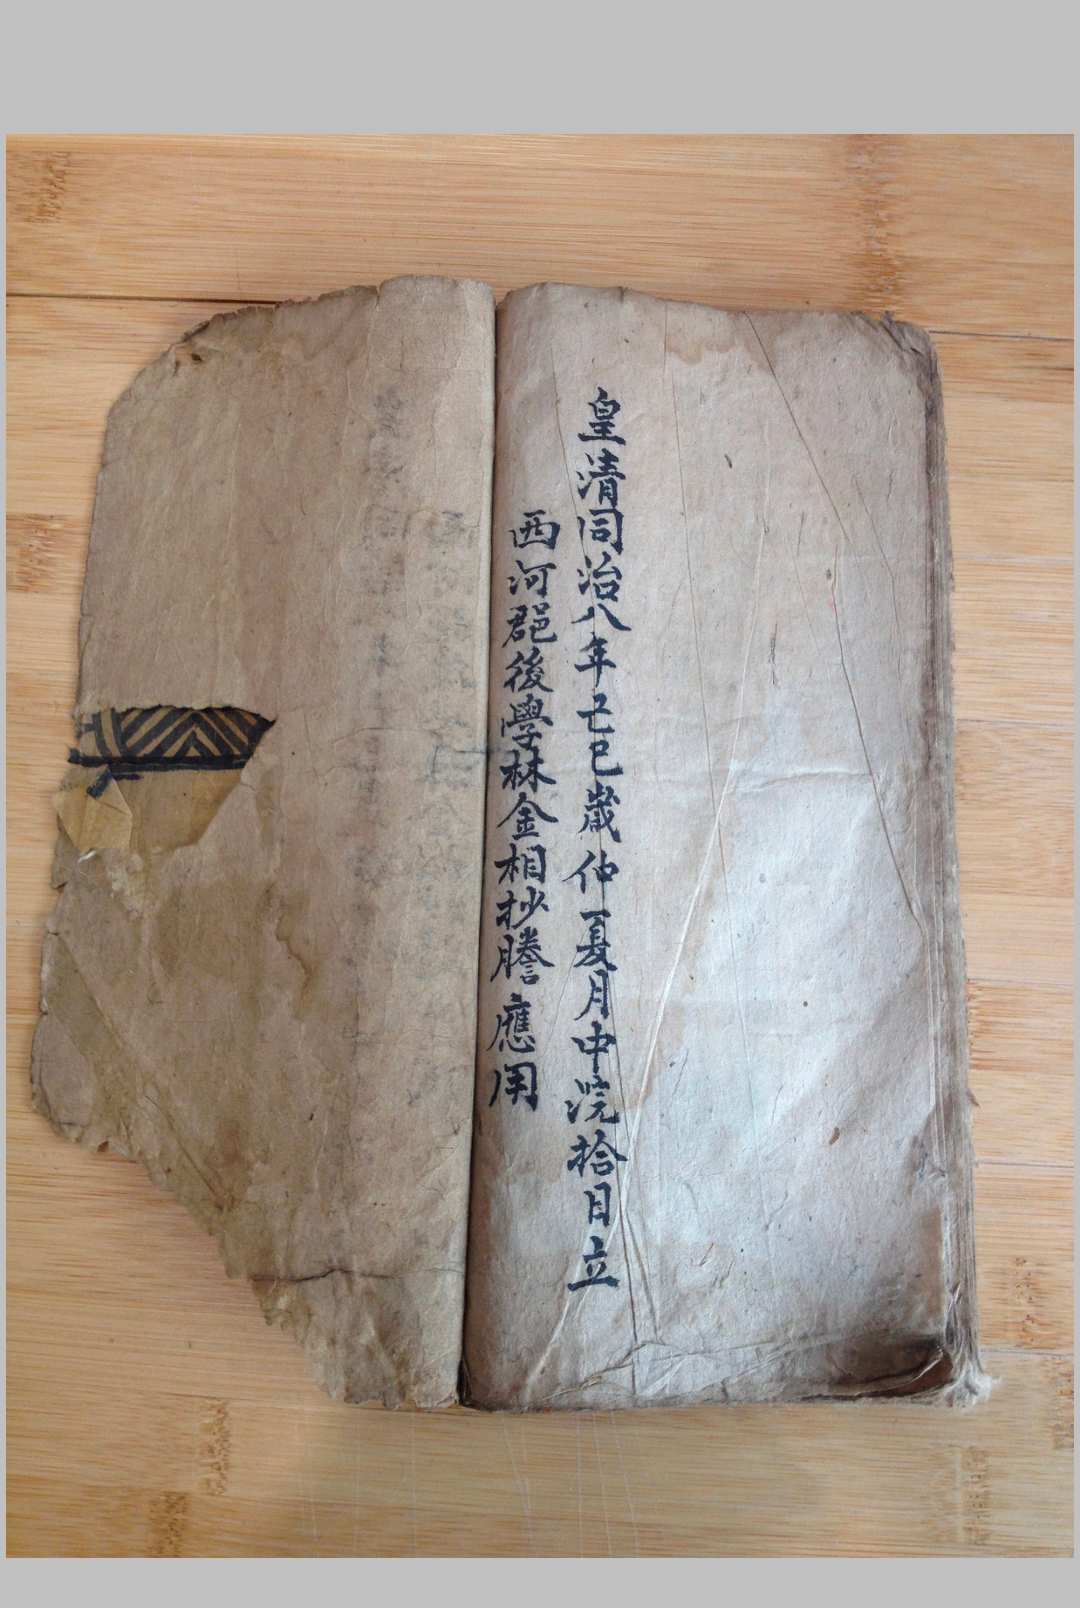 皇清同治八年己巳歲仲夏月中浣拾日立
西河郡後學林金相抄謄應用